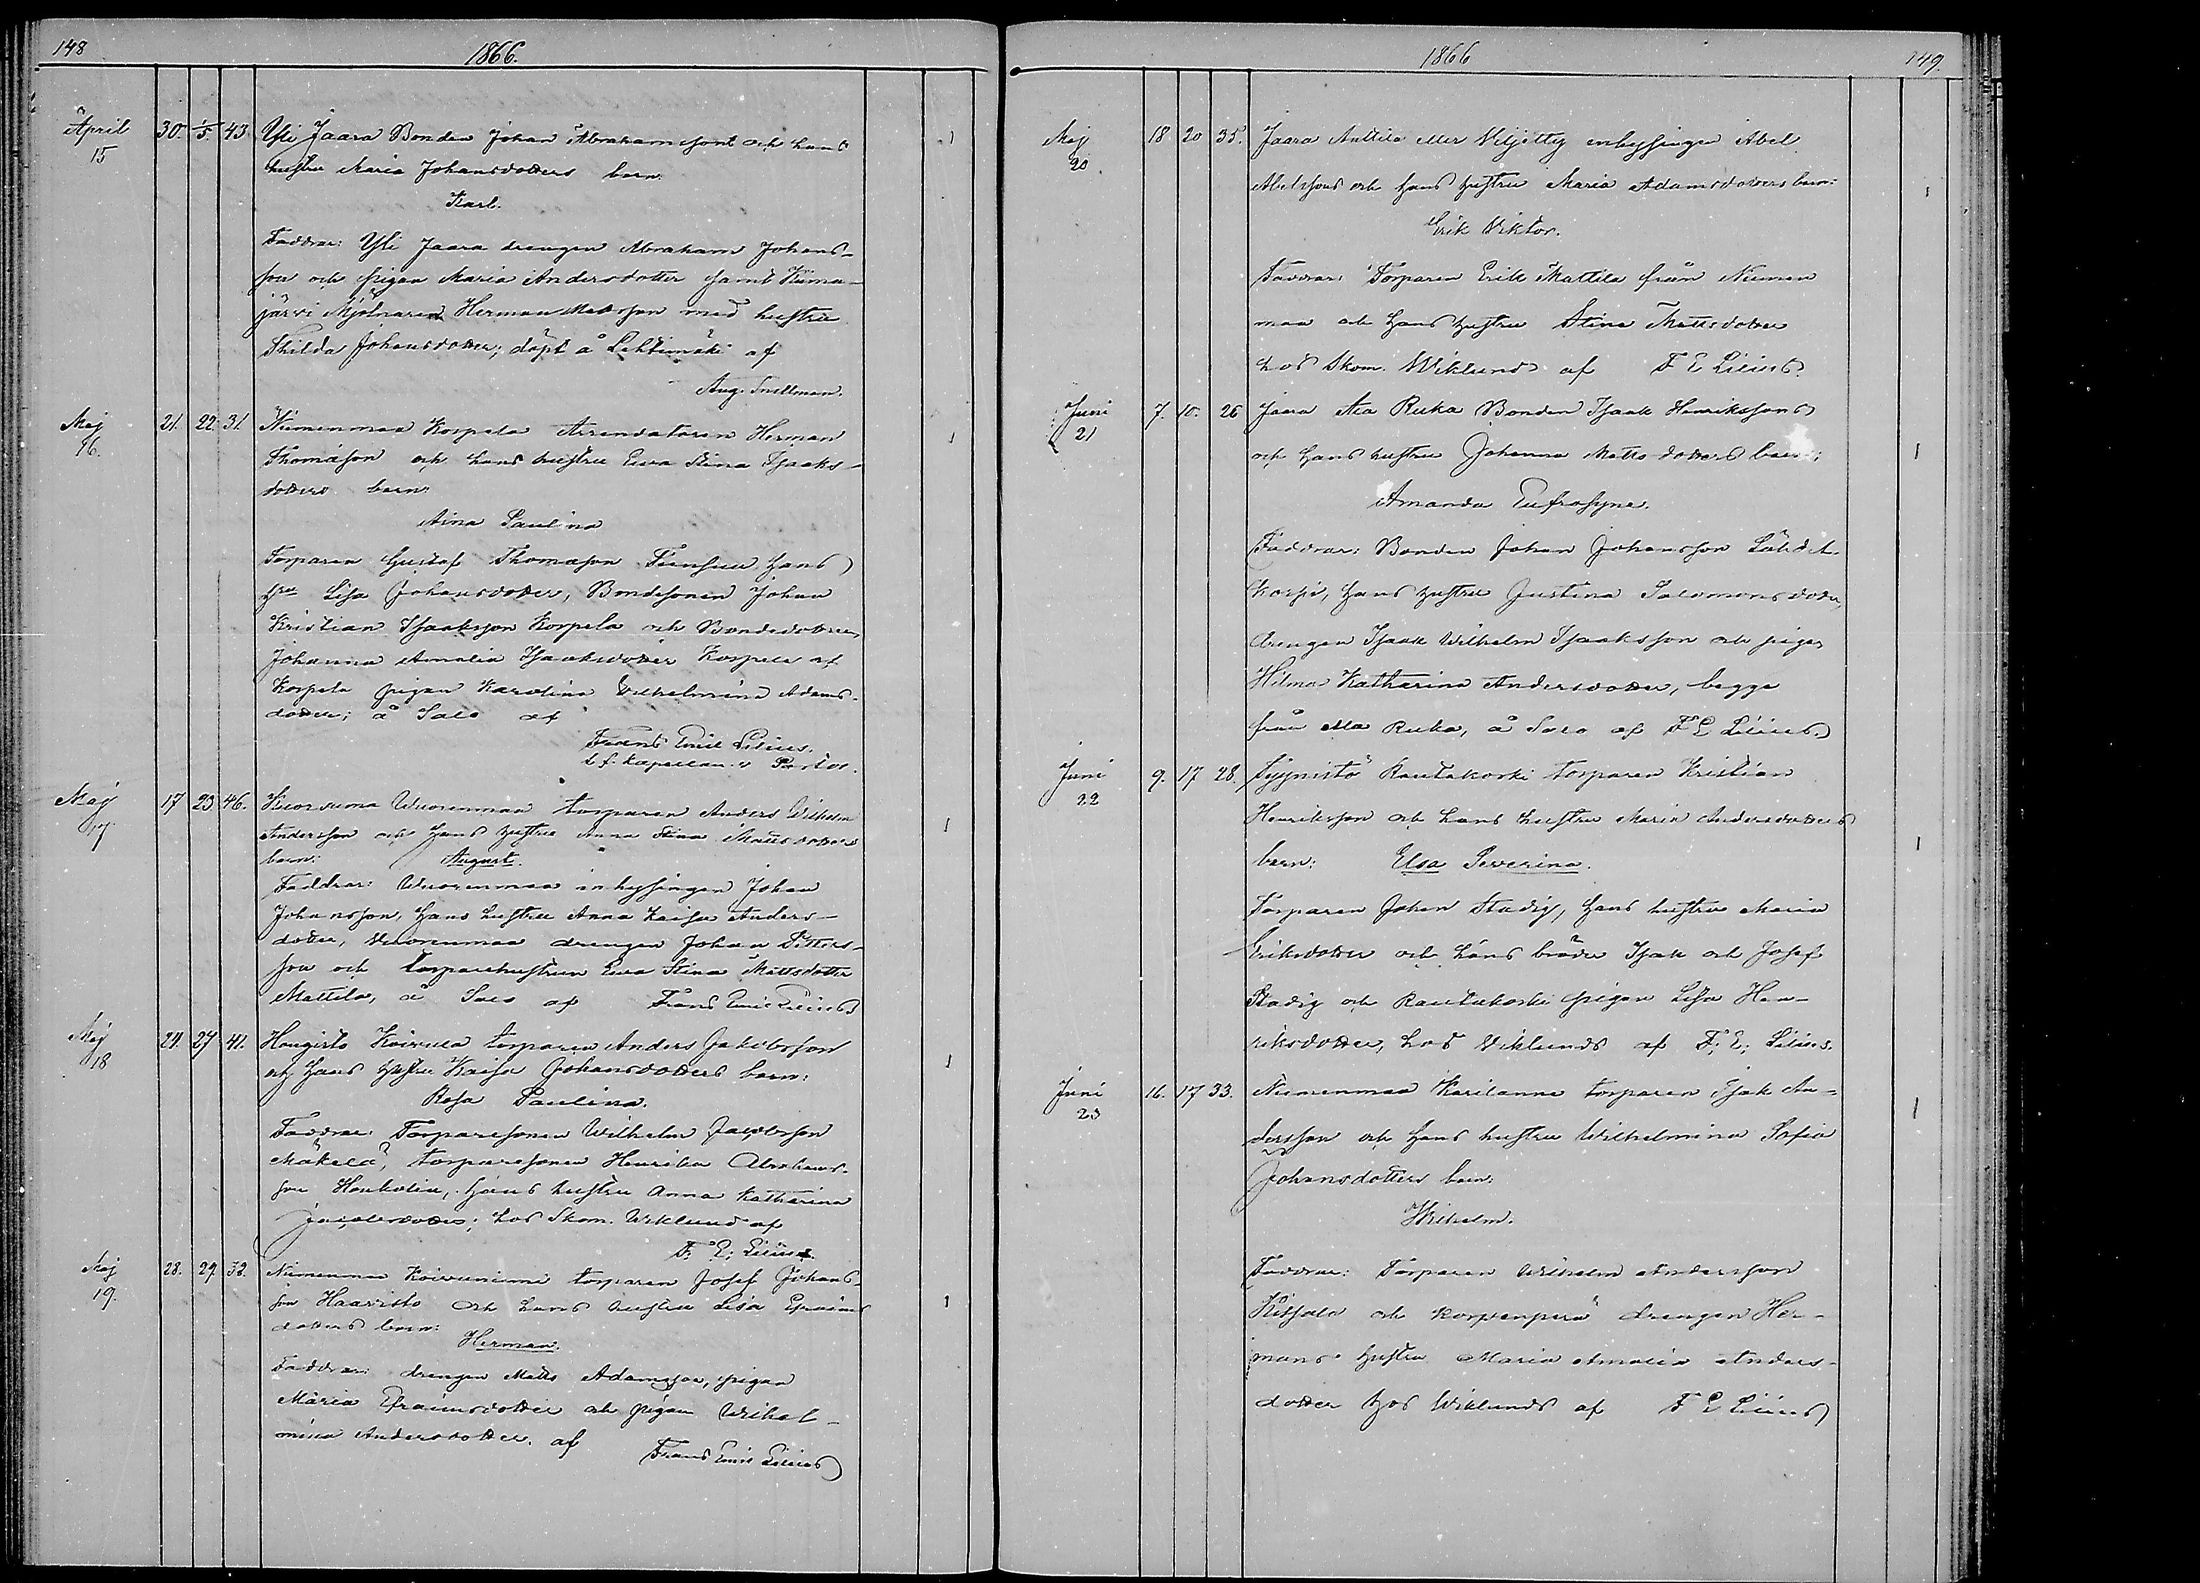 148
1866.
April 30. 1/5. 43. Yli Jaara Bonden Johan Abrahamsons och hans
15 hustru Maria Johansdotters barn:
Karl.
Faddrar: Yli Jaara drengen Abraham Johans-
son och pigan Maria Andersdotter samt Kiima-
järvi Mjölnaren Herman Matsson med hustru
Johansdotter; döpt å Lehtimäki af
Aug. Snellman.
Maj 21. 22. 31. Niemenmaa Korpela Arrendatoren Herman
16. Thomason och hans hustru Eva Stina Isaaks-
dotters barn:
Aina Paulina
Torparen Gustaf Thomason hans
hru Lisa Johansdotter, Bondesonen Johan
Kristian Isaaksson Korpela och Bondedottren
Johanna Amalia Isaksdotter Korpela af
Korpela pigan Karolina Wilhelmina Adams-
dotter; å Salo af
Frans Emil Lilius.
t. f. Kapellan o Pastor.
Maj 17 23 46. Wuorenmaa torparen Anders Wilhelm
17 Andersson och hans hustru Anna Stina Mattsdotters
barn: August.
Faddrar: Wuorenmaa inhysingen Johan
Johansson, hans hustru Anna Kaisa Anders-
dotter, Wuorenmaa drengen Johan Petters-
son och torparehustrun Eva Stina Mattsdotter
Mattila, å Salo af Frans Emil Lilius
Maj 24. 27 41. Hongisto Koivula torparen Anders Jakobsson
18 och hans hustru Kaisa Johansdotters barn:
Rosa Paulina.
Faddrar: Torparesonen Wilhelm Jacobsson
Mäkelä, torparesonen Henrik Abrahams-
son hans hustru Anna Katharina
Jacobsdotter; hos Skom. Wiklund af
F. E; Lilius.
Maj 28. 29. 32. Niemenmaa Koivuniemi torparen Josef Johans-
19. son Haavisto och hans hustru Lisa Efraims
dotters barn:
Herman.
Faddrar: drengen Matts Adamsson, pigan
Maria Efraimsdotter och pigan Wilhel-
mina Andersdotter. af Frans Emil Lilius
1866
149.
Maj 18 20 35. Jaara Anttila eller Viljetty inhysingen Abel
20 Abelssons och hans hustru Maria Adamsdotters barn:
Erik Viktor.
Faddrar: Torparen Erik Mattila från Niemen
maa och hans hustru Stina Mattsdotter
hos Skom. Wiklund af F E Lilius.
Juni 7. 10. 26 Jaara Ala Ruka Bonden Isaak Henrikssons
21 och hans hustru Johanna Matts dotters barn;
Amanda Eufrosyne.
Faddrar: Bonden Johan Johansson
hans hustru Justina Salomonsdotter,
drengen Isaak Wilhelm Isaaksson och pigan
Hilma Katharina Andersdotter, begge
från Ala Ruka, å Salo af F E Lilius.
Juni 9. 17 28. Syynistö Rautakoski torparen Kristian
22 Henriksson och hans hustru Maria Andersdotters
barn: Elsa Severina.
Torparen Johan Stadig, hans hustru Maria
Eriksdotter och hans bröder Isak och Josef
Stadig och Rautakoski pigan Lisa Hen-
riksdotter, hos Wiklunds af F; E; Lilius.
Juni 16. 17 33. Niemenmaa Karilanma torparen Isak An-
23 dersson och hans hustru Wilhelmina Sofia
Johansdotters barn:
Wilhelm.
Faddrar: Torparen Wilhelm Andersson
och Korpenperä drengen Her-
mans hustru Maria Amalia Anders-
dotter hos Wiklunds af F E Lilius